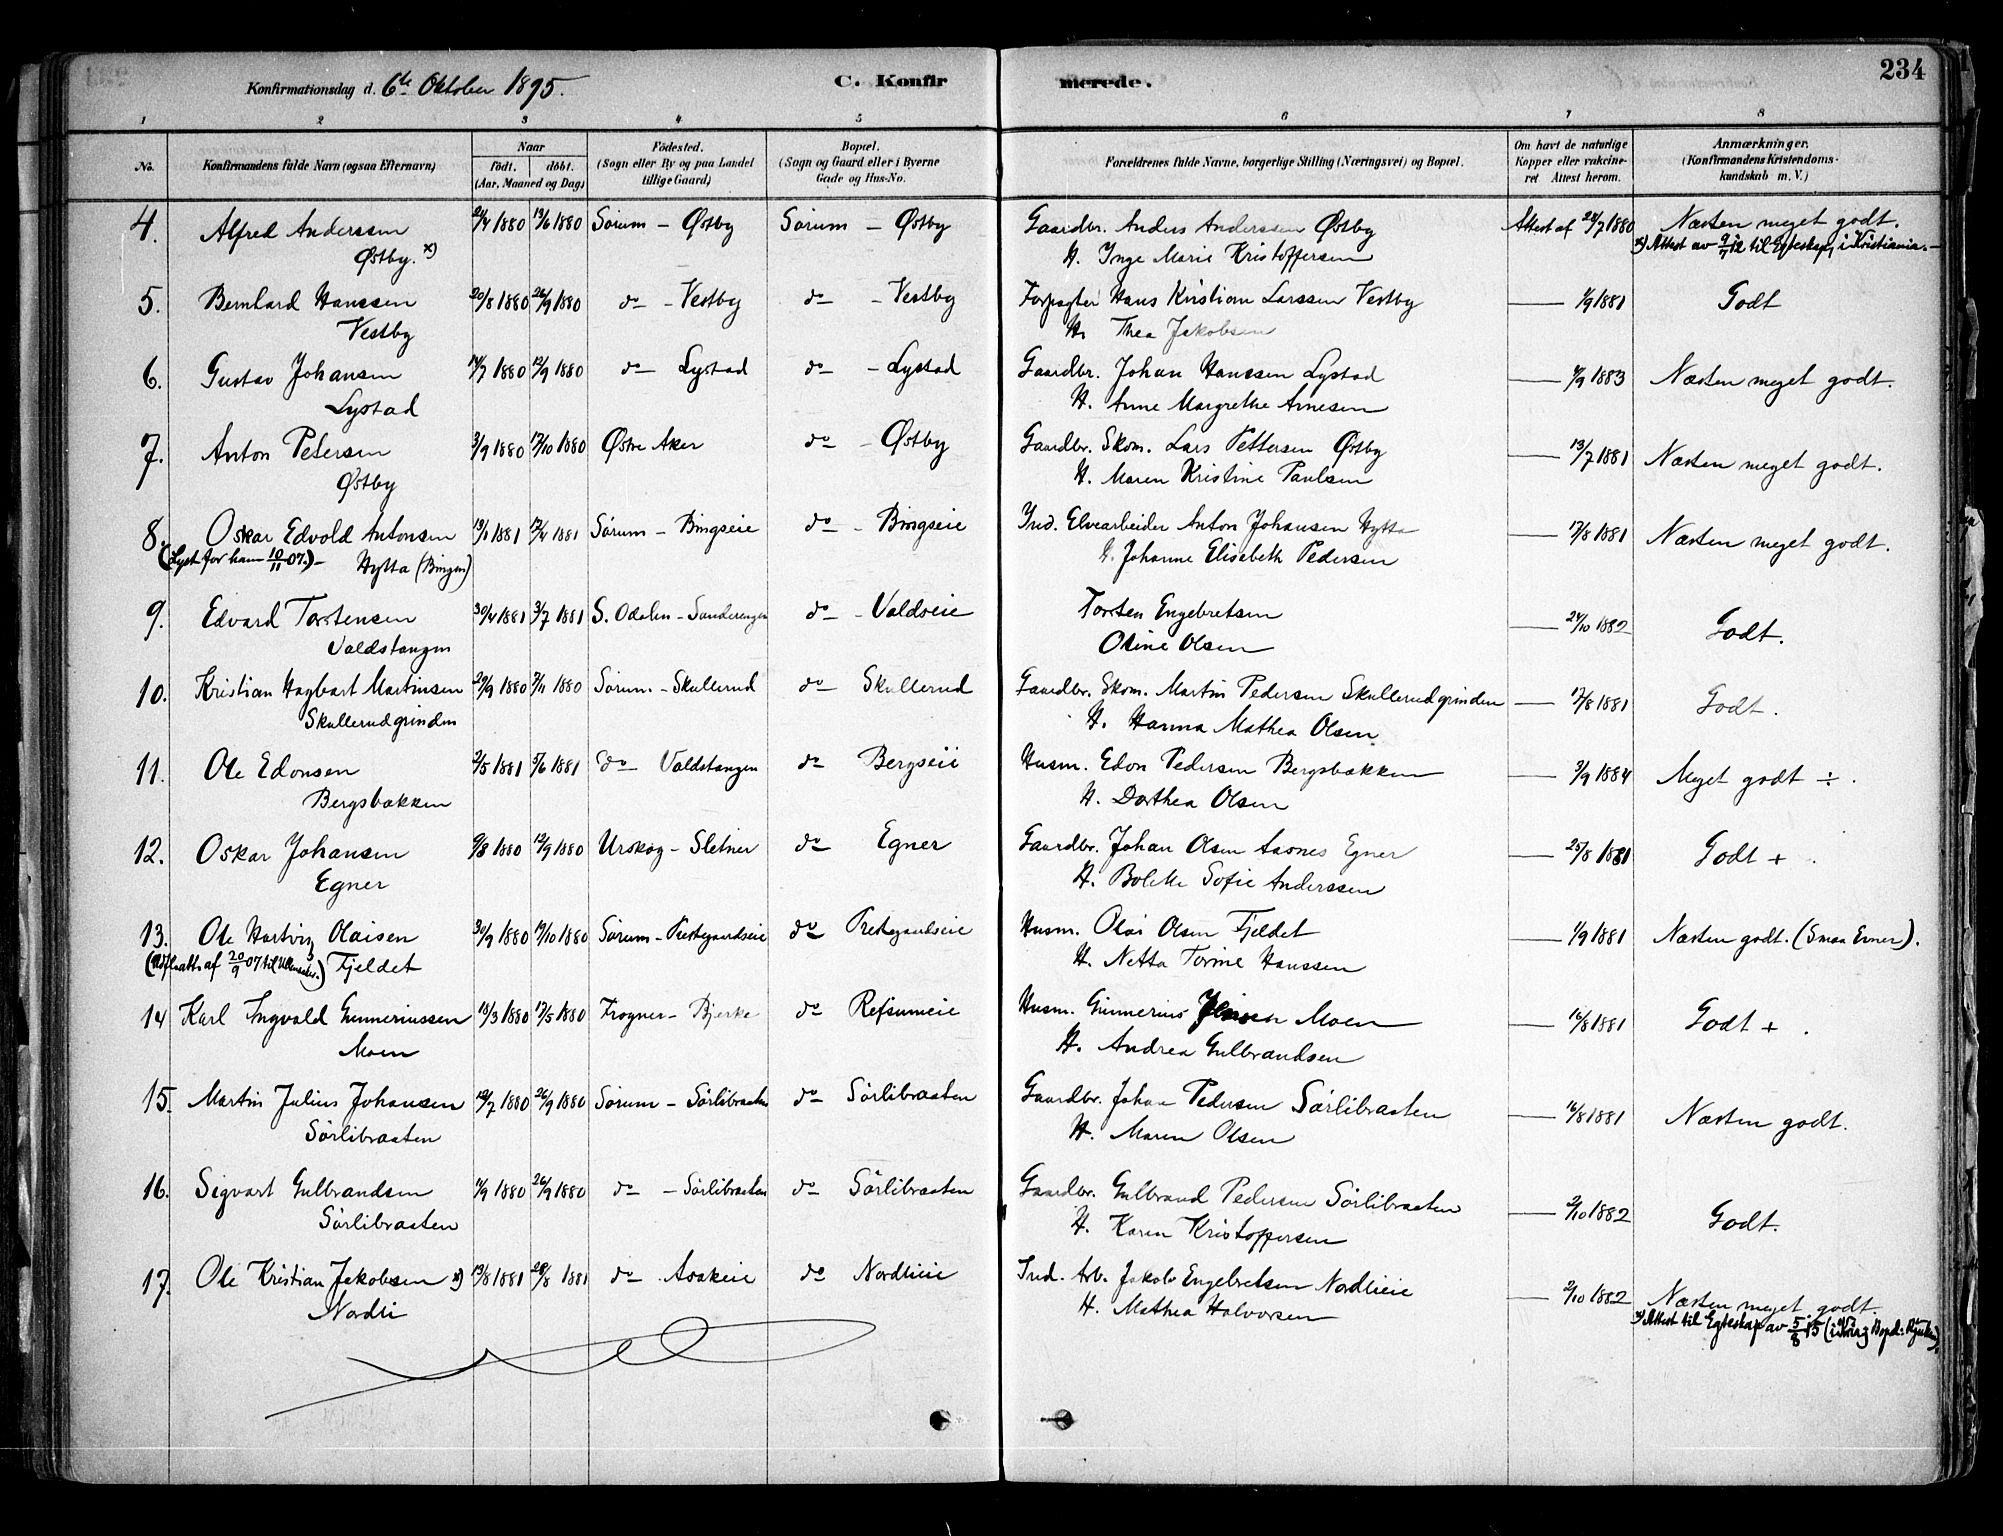 234
Konfirmationsdag d. 6te Oktober 1895.
C. Konfirmerede.
1 2 3 4 5 6 7 8
No.
Konfirmandens fulde Navn (ogsaa Efternavn)
Naar
født. døbt.
(Aar, Maaned og Dag)
Fødested.
(Sogn eller By og paa Landet
tillige Gaard)
Bopæl.
(Sogn og Gaard eller i Byerne
Gade og Hus-No.
Forældrenes fulde Navne, borgerlige Stilling (Næringsvei) og Bopæl.
Om havt de naturlige
Kopper eller vakcine-
ret Attest herom.
Anmærkninger.
(Konfirmandens Kristendoms-
kundskab m. V.)
4. Alfred Anderssen 2/4 1880 13/6 1880 Sørum - Østby Sørum - Østby Gaardbr. Anders Anderssen Østby Attest af 28/7 1880 Næsten meget godt.
Østby. x) H. Inge Marie Kristoffersen x) Attest av 9/7 12 til Egteskap, i Kristiania.-
5. Bernhard Hanssen 20/8 1880 26/9 1880 do - Vestby do - Vestby Forpagter Hans Kristian Larssen Vestby — 1/9 1881 Godt
Vestby H. Thea Jakobsen
6. Gustav Johansen 14/7 1880 12/9 1880 do Lystad do - Lystad Gaardbr. Johan Hanssen Lystad — 4/9 1883 Næsten meget godt.
Lystad H. Anne Margrethe Arnesen
7. Anton Petersen 3/9 1880 17/10 1880 Østre Aker do - Østby Gaardbr. Skom. Lars Pettersen Østby — 13/7 1881 Næsten meget godt.
Østby H. Maren Kristine Paulsen
8. Oskar Edvold Antonsen 19/1 1881 17/4 1881 Sørum - Bingseie do - Bingseie Ind. Elvearbeider Anton Johansen Hytta — 17/8 1881 Næsten meget godt.
(Lyst for ham 10/11 07.)- Hytta (Bingen) H. Johanne Elisabeth Pedersen
9. Edvard Torstensen 30/4 1881 3/7 1881 S. Odalen - Sanderengen do - Valdseie Torsten Engebretsen — 24/10 1882 Godt.
Valdstangen Oline Olsen
10. Kristian Hagbart Martinsen 29/9 1880 7/11 1880 Sørum - Skullerud do Skullerud Gaardbr. Skom. Martin Pedersen Skullerudgrinden — 17/8 1881 Godt.
Skullerudgrinden H. Hanna Mathea Olsen
11. Ole Edonsen 2/5 1881 5/6 1881 do Valdstangen do Bergseie Husm. Edon Pedersen Bergsbakken — 3/9 1884 Meget godt ÷.
Bergsbakken H. Dorthea Olsen
12. Oskar Johansen 9/8 1880 12/9 1880 Urskog - Sletner do Egner Gaardbr. Johan Olsen Aasnes Egner — 25/8 1881 Godt + .
Egner H. Bolette Sofie Anderssen
13. Ole Hartvig Olaisen 30/9 1880 19/10 1880 Sørum - Prestegaardseie do Prestegaardseie Husm. Olai Olsen Fjeldet — 1/9 1881 Næsten godt. (Smaa Evner).
(Udflyttatts af 20/9 07 til Ullensaker.) Fjeldet H. Netta Torine Hanssen
14 Karl Ingvald Gunneriussen 18/3 1880 17/5 1880 Frogner - Bjerke do Refsumeie Husm. Gunnerius Moen — 16/8 1881 Godt + .
Moen H. Andrea Gulbrandsen
15. Martin Julius Johansen 19/7 1880 26/9 1880 Sørum - Sørlibraaten do Sørlibraaten Gaardbr. Johan Pedersen Sørlibraaten — 16/8 1881 Næsten godt.
Sørlibraaten H. Maren Olsen
16. Sigvart Gulbrandsen 11/9 1880 26/9 1880 do - Sørlibraaten do Sørlibraaten Gaardbr. Gulbrand Pedersen Sørlibraaten — 2/10 1882 Godt.
Sørlibraaten H. Karen Kristoffersen
17. Ole Kristian Jakobsen x) 13/8 1881 28/8 1881 do Asakeie do Nordlieie Ind. Arb. Jakob Engebretsen Nordlieie — 2/10 1882 Næsten meget godt.
Nordli H. Mathea Halvorsen x) Attest til Egteskap av 5/8 15 Bopel: Rjukan).